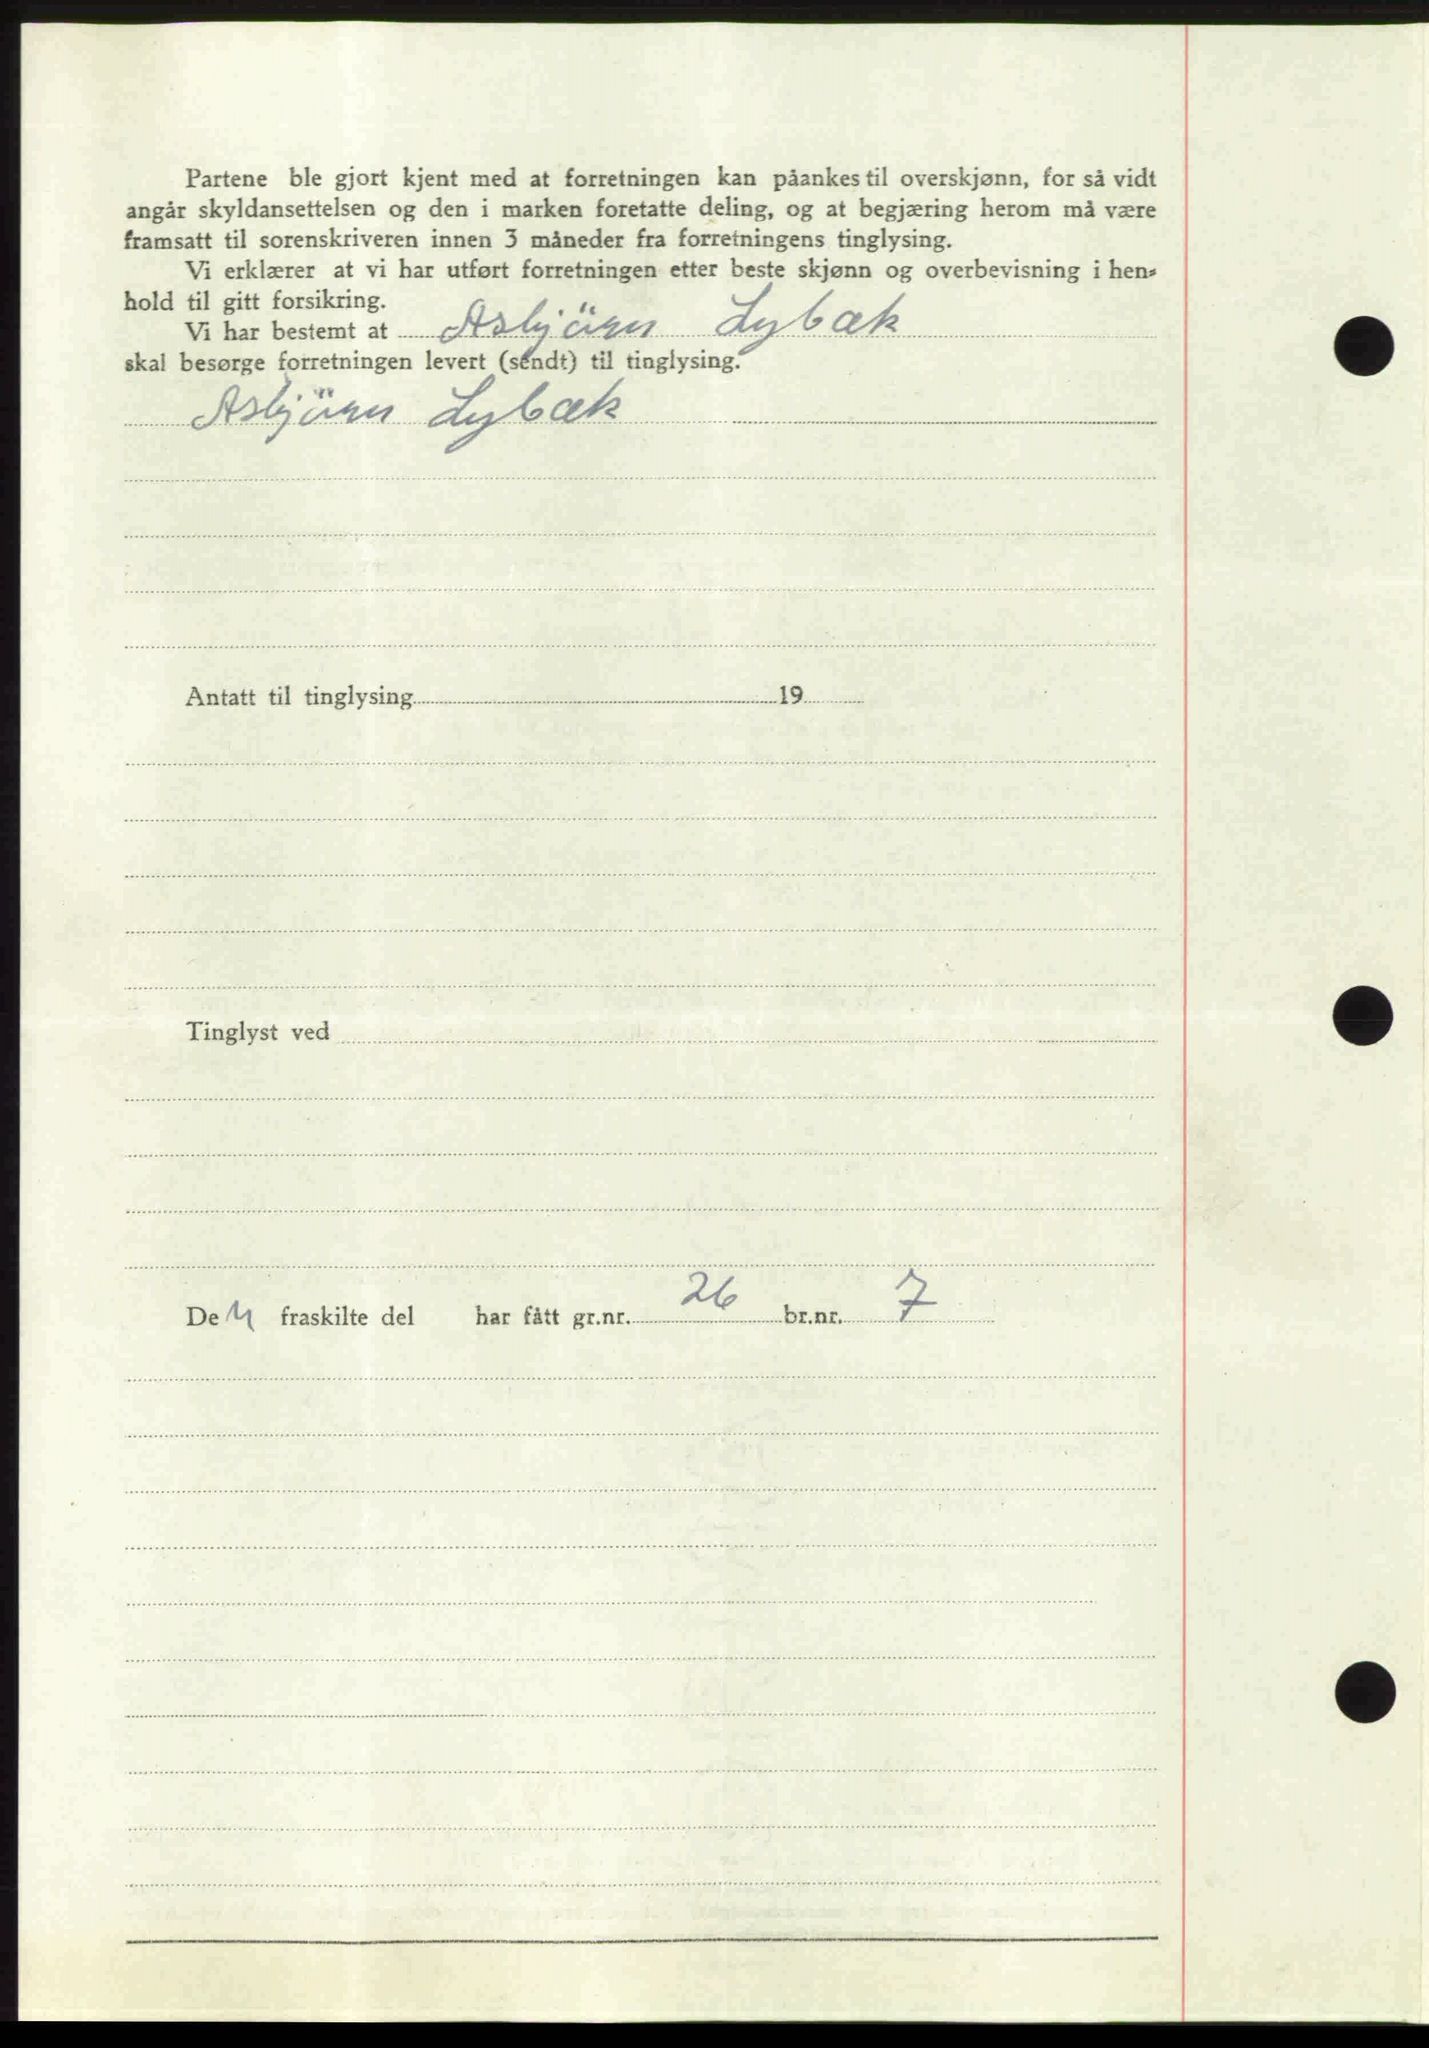 Partene ble gjort kjent med at forretningen kan påankes til overskjønn, for så vidt
angår skyldansettelsen og den i marken foretatte deling, og at begjæring herom må være
framsatt til sorenskriveren innen 3 måneder fra forretningens tinglysing.
Vi erklærer at vi har utført forretningen etter beste skjønn og overbevisning i hen-
hold til gitt forsikring.
Vi har bestemt at Asbjörn Lybæk
skal besørge forretningen levert (sendt) til tinglysing.
Asbjörn Lybæk
Antatt til tinglysing 19
Tinglyst ved
Den fraskilte del har fått gr.nr. 26 br.nr. 7